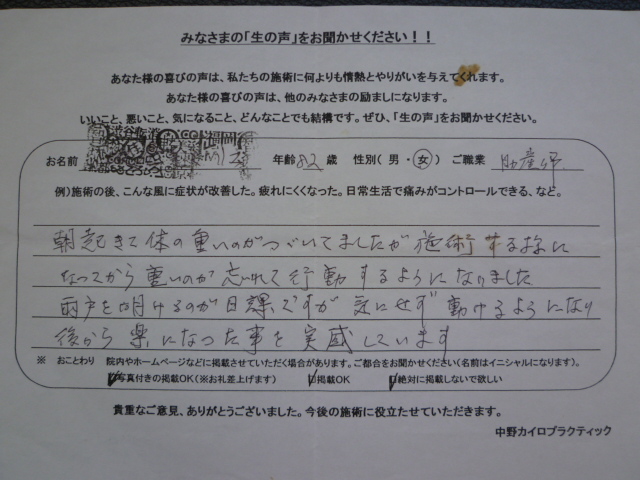 みなさまの「生の声」をお聞かせください！！
あなた様の喜びの声は、私たちの施術に何よりも情熱とやりがいを与えてくれます。
あなた様の喜びの声は、他のみなさまの励ましになります。
いいこと、悪いこと、気になること、どんなことでも結構です。ぜひ、「生の声」をお聞かせください。
お名前 年齢 82 歳 性別（ 男 ・ 女 ） ご職業 助産婦
例）施術の後、こんな風に症状が改善した。疲れにくくなった。日常生活で痛みがコントロールできる、など。
朝起きて体の重いのがつづいてましたが施術する様に
なってから重いのが忘れて行動するようになりました
雨戸を明けるのが日課ですが気にせず動けるようになり
後から楽になった事を実感しています
※ おことわり 院内やホームページなどに掲載させていただく場合があります。ご都合をお聞かせください（名前はイニシャルになります）。
写真付きの掲載OK（※お礼差上げます） 掲載OK 絶対に掲載しないで欲しい
貴重なご意見、ありがとうございました。今後の施術に役立たせていただきます。
中野カイロプラクティック